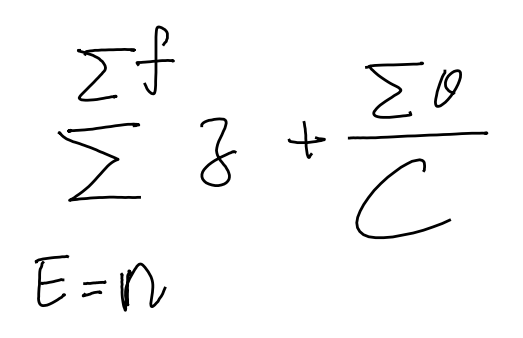 \sum_{E=n}^{\sum f} z + \frac{\sum \theta}{C}